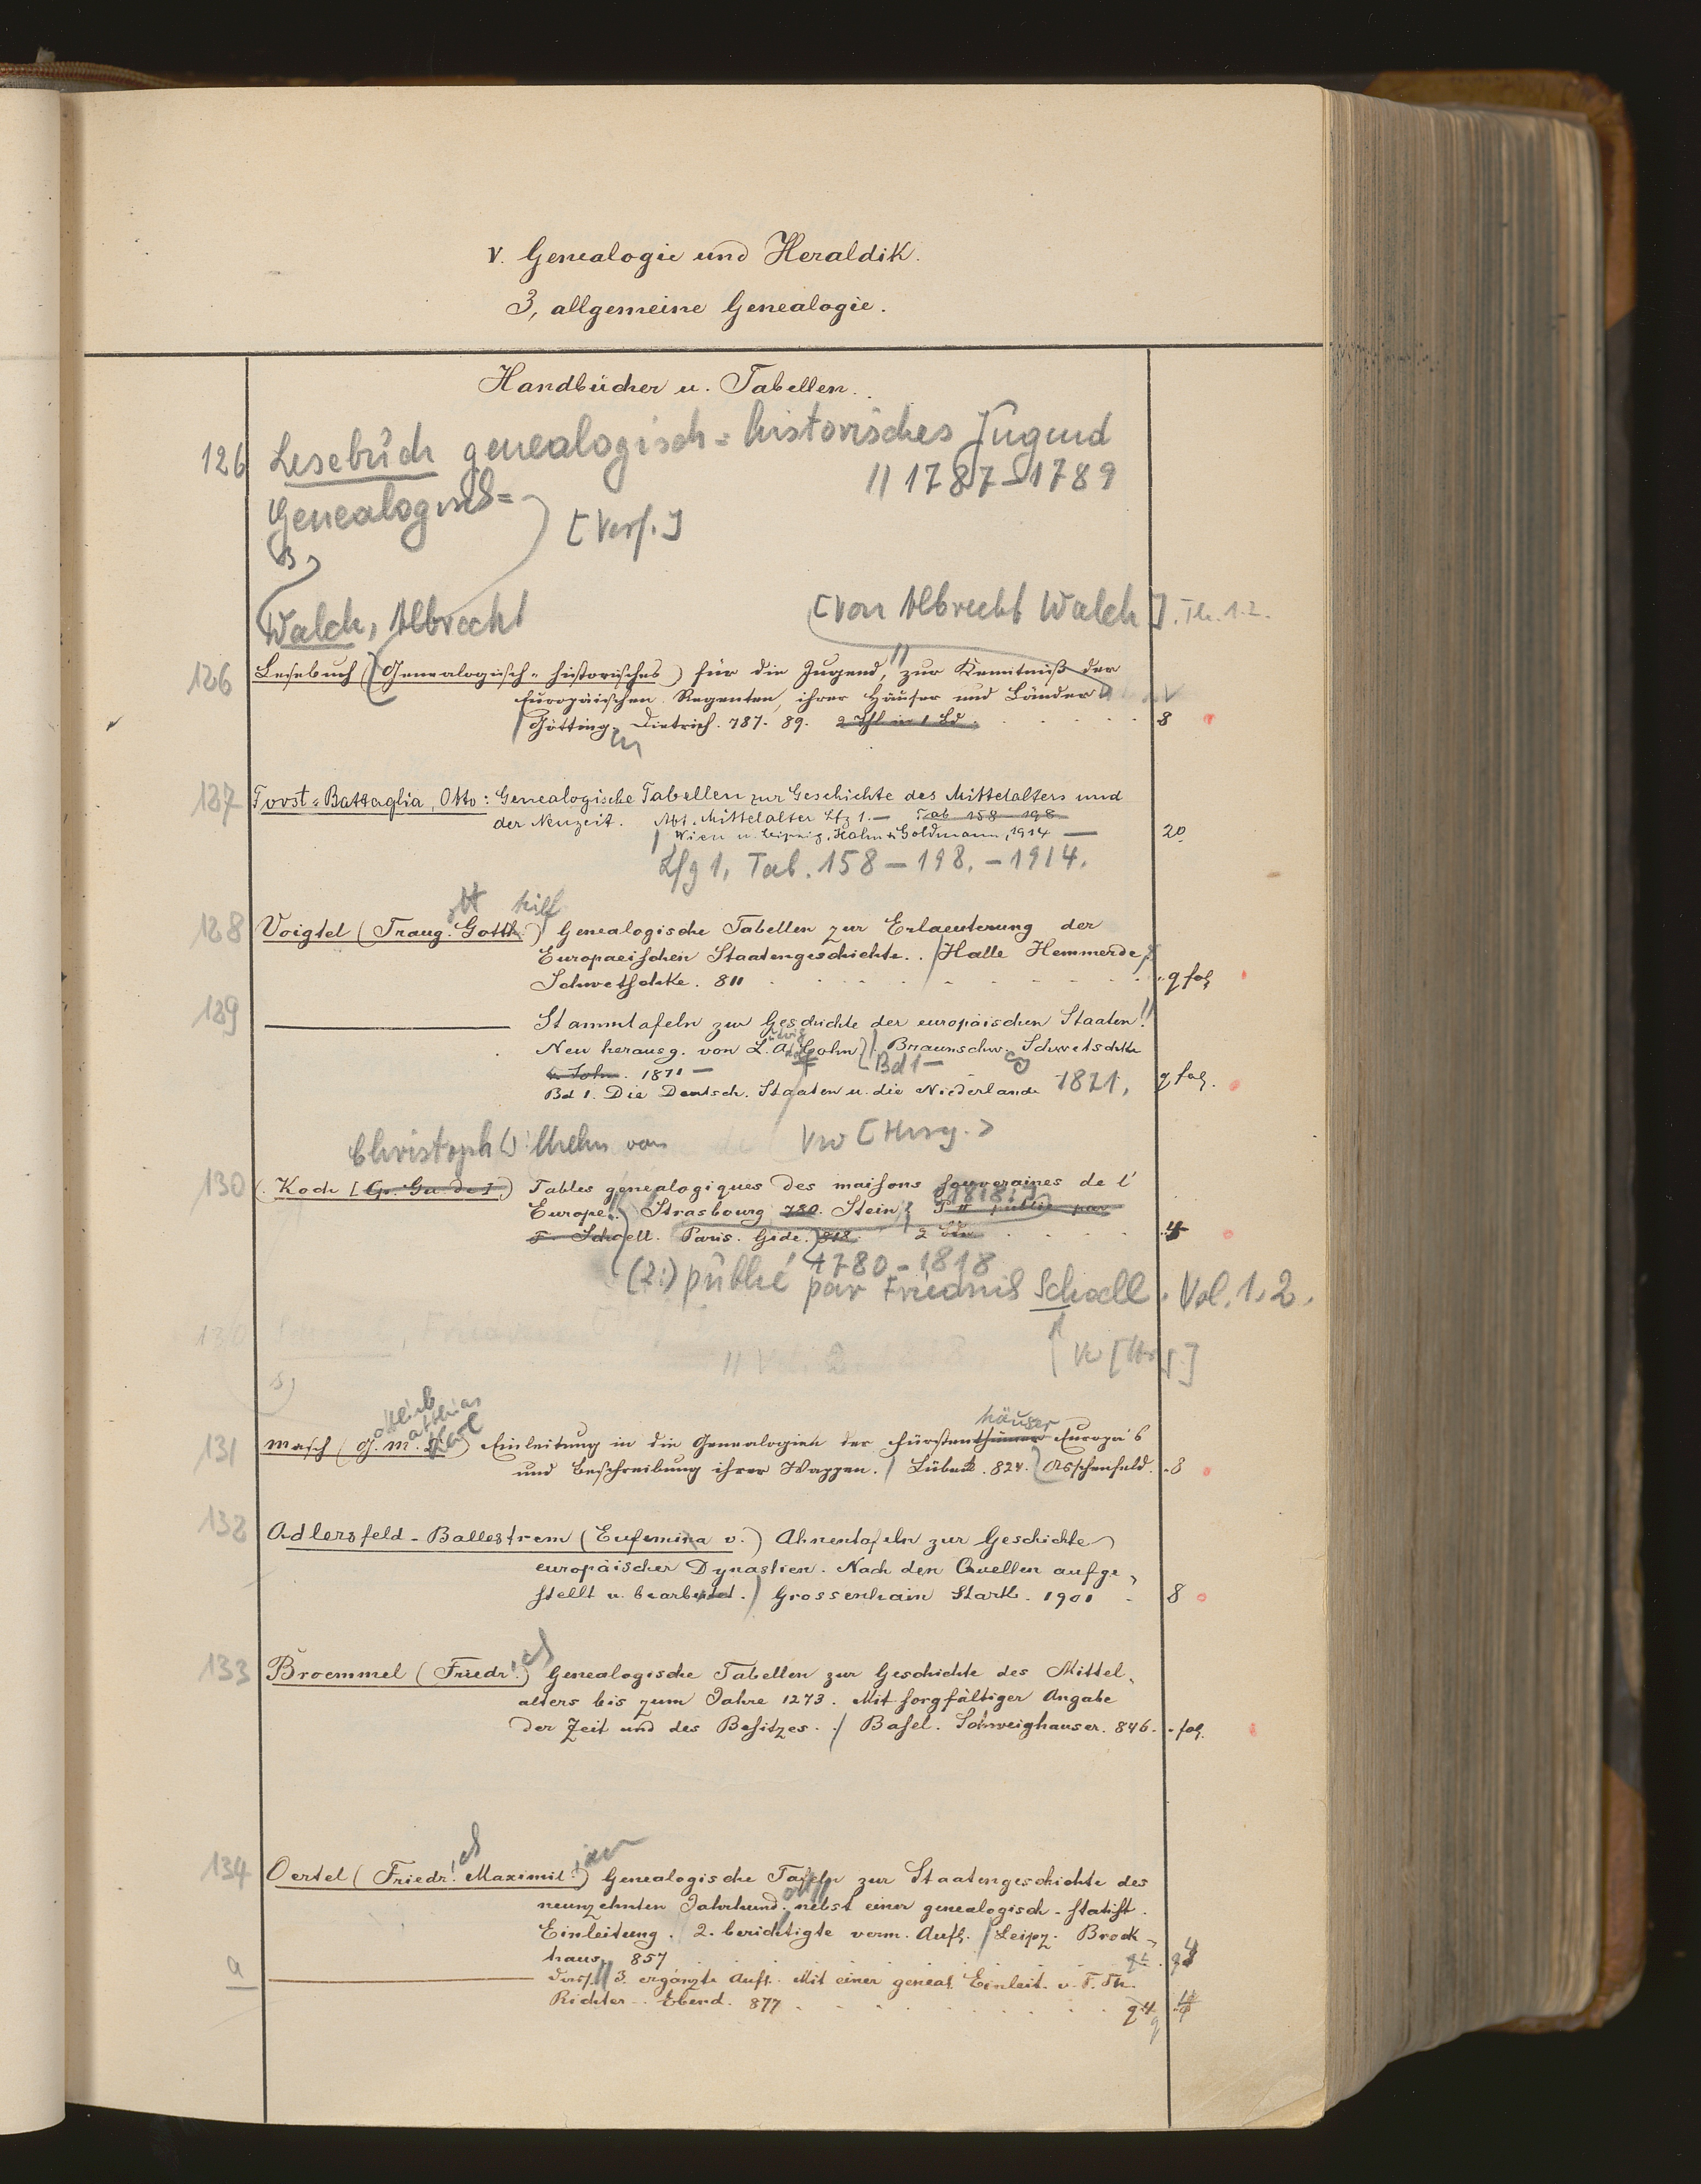 V. Genealogie und Heraldik.
3, allgemeine Genealogie.
Handbücher u. Tabellen.
126 Lesebuch genealogisch-historisches Jugend
// 1787-1789
Genealogisch=
[Verf.]
Walch, Albrecht [von Albrecht Walch]. Th. 1.2.
126 Lesebuch (Genealogisch-historisches) für die Jugend, // zur Kenntniß der
Europäischen Regenten, ihrer Häuser und Länder
Götting. Dietrich. 787. 89. 2 Thl in 1 Bd. 8
127 Forst-Battaglia, Otto: Genealogische Tabellen zur Geschichte des Mittelalters und
der Neuzeit. Abt. Mittelalter Lfg 1.— Tab 158-198
Wien u. Leipzig, Halm & Goldmann, 1914 — 20.
Lfg 1, Tab. 158-198. - 1914.
ott hilf
128 Voigtel (Traug. Gotth.) Genealogische Tabellen zur Erlaeuterung der
Europaeischen Staatengeschichte. / Halle Hemmerde &
Schwetschke. 811 q fol.
129 ——— Stammtafeln zur Geschichte der europäischen Staaten. //
Neu herausg. von L. A. Cohn. Braunschw. Schwetschke
& Sohn. 1871 — Bd 1 —
Bd 1. Die Deutsch. Staaten u. die Niederlande 1871. q fol.
Christoph Wilhelm von Vw [Hrsg.]
130 (Koch [Gu. de]) Tables génealogiques des maisons souveraines de l'
Europe. Strasbourg 780. Stein; T. II publié par
F. Schoell. Paris. Gide. 818. 2 Bde 4
1780-1818
(2:) publié par Friedrich Schoell. Vol. 1.2.
Vw [Hrsg.]
ottlieb atthias
131 Masch (G. M. Carl) Einleitung in die Genealogien der Fürstenthümer Europa's
häuser
und Beschreibung ihrer Wappen. / Lübeck. 824. Asschenfeld. 8
132 Adlersfeld-Ballestrem (Eufemina v.) Ahnentafeln zur Geschichte
europäischer Dynastien. Nach den Quellen aufge-
stellt u. bearbeitet. / Grossenhain Stark. 1901 8
133 Broemmel (Friedr.) Genealogische Tabellen zur Geschichte des Mittel-
alters bis zum Jahre 1273. Mit sorgfältiger Angabe
der Zeit und des Besitzes. / Basel. Schweighauser. 846. fol.
134 Oertel (Friedr. Maximil.) Genealogische Tafeln zur Staatengeschichte des
neunzehnten Jahrhund. nebst einer genealogisch-statist.
Einleitung. 2. berichtigte verm. Aufl. / Leipz. Brock-
haus 857 q 4
a ——— Dass. // 3. ergänzte Aufl. Mit einer geneal. Einleit. v. F. Th.
Richter. Ebend. 877 q. 4